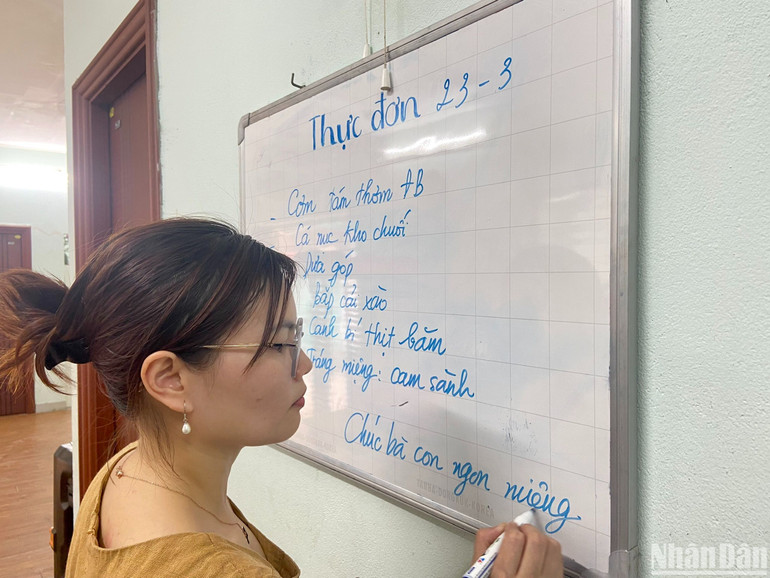 Thực đơn 23-3
- Cơm tám thơm ĐB
- Cá nục kho chuối
Dưa góp
bắp cải xào
. Canh bí thịt băm
Tráng miệng: cam sành
Chúc bà con ngon miệng
Nhân Dân